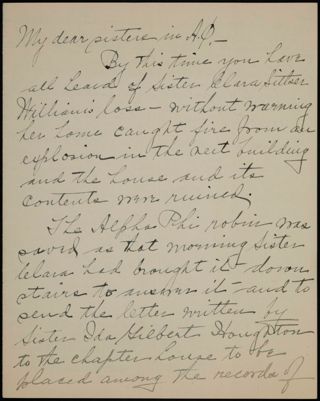 My dear sisters in A.Φ.—
By this time you have
all heard of Sister Clara Sittser
Williams loss — without warning
her home caught fire from an
explosion in the next building
and the house and its
contents were ruined.
The Alpha Phi robin was
saved as that morning Sister
Clara had brought it down
stairs to answer it — and to
send the letter written by
Sister Ida Gilbert Houghton
to the chapter house to be
placed among the records of